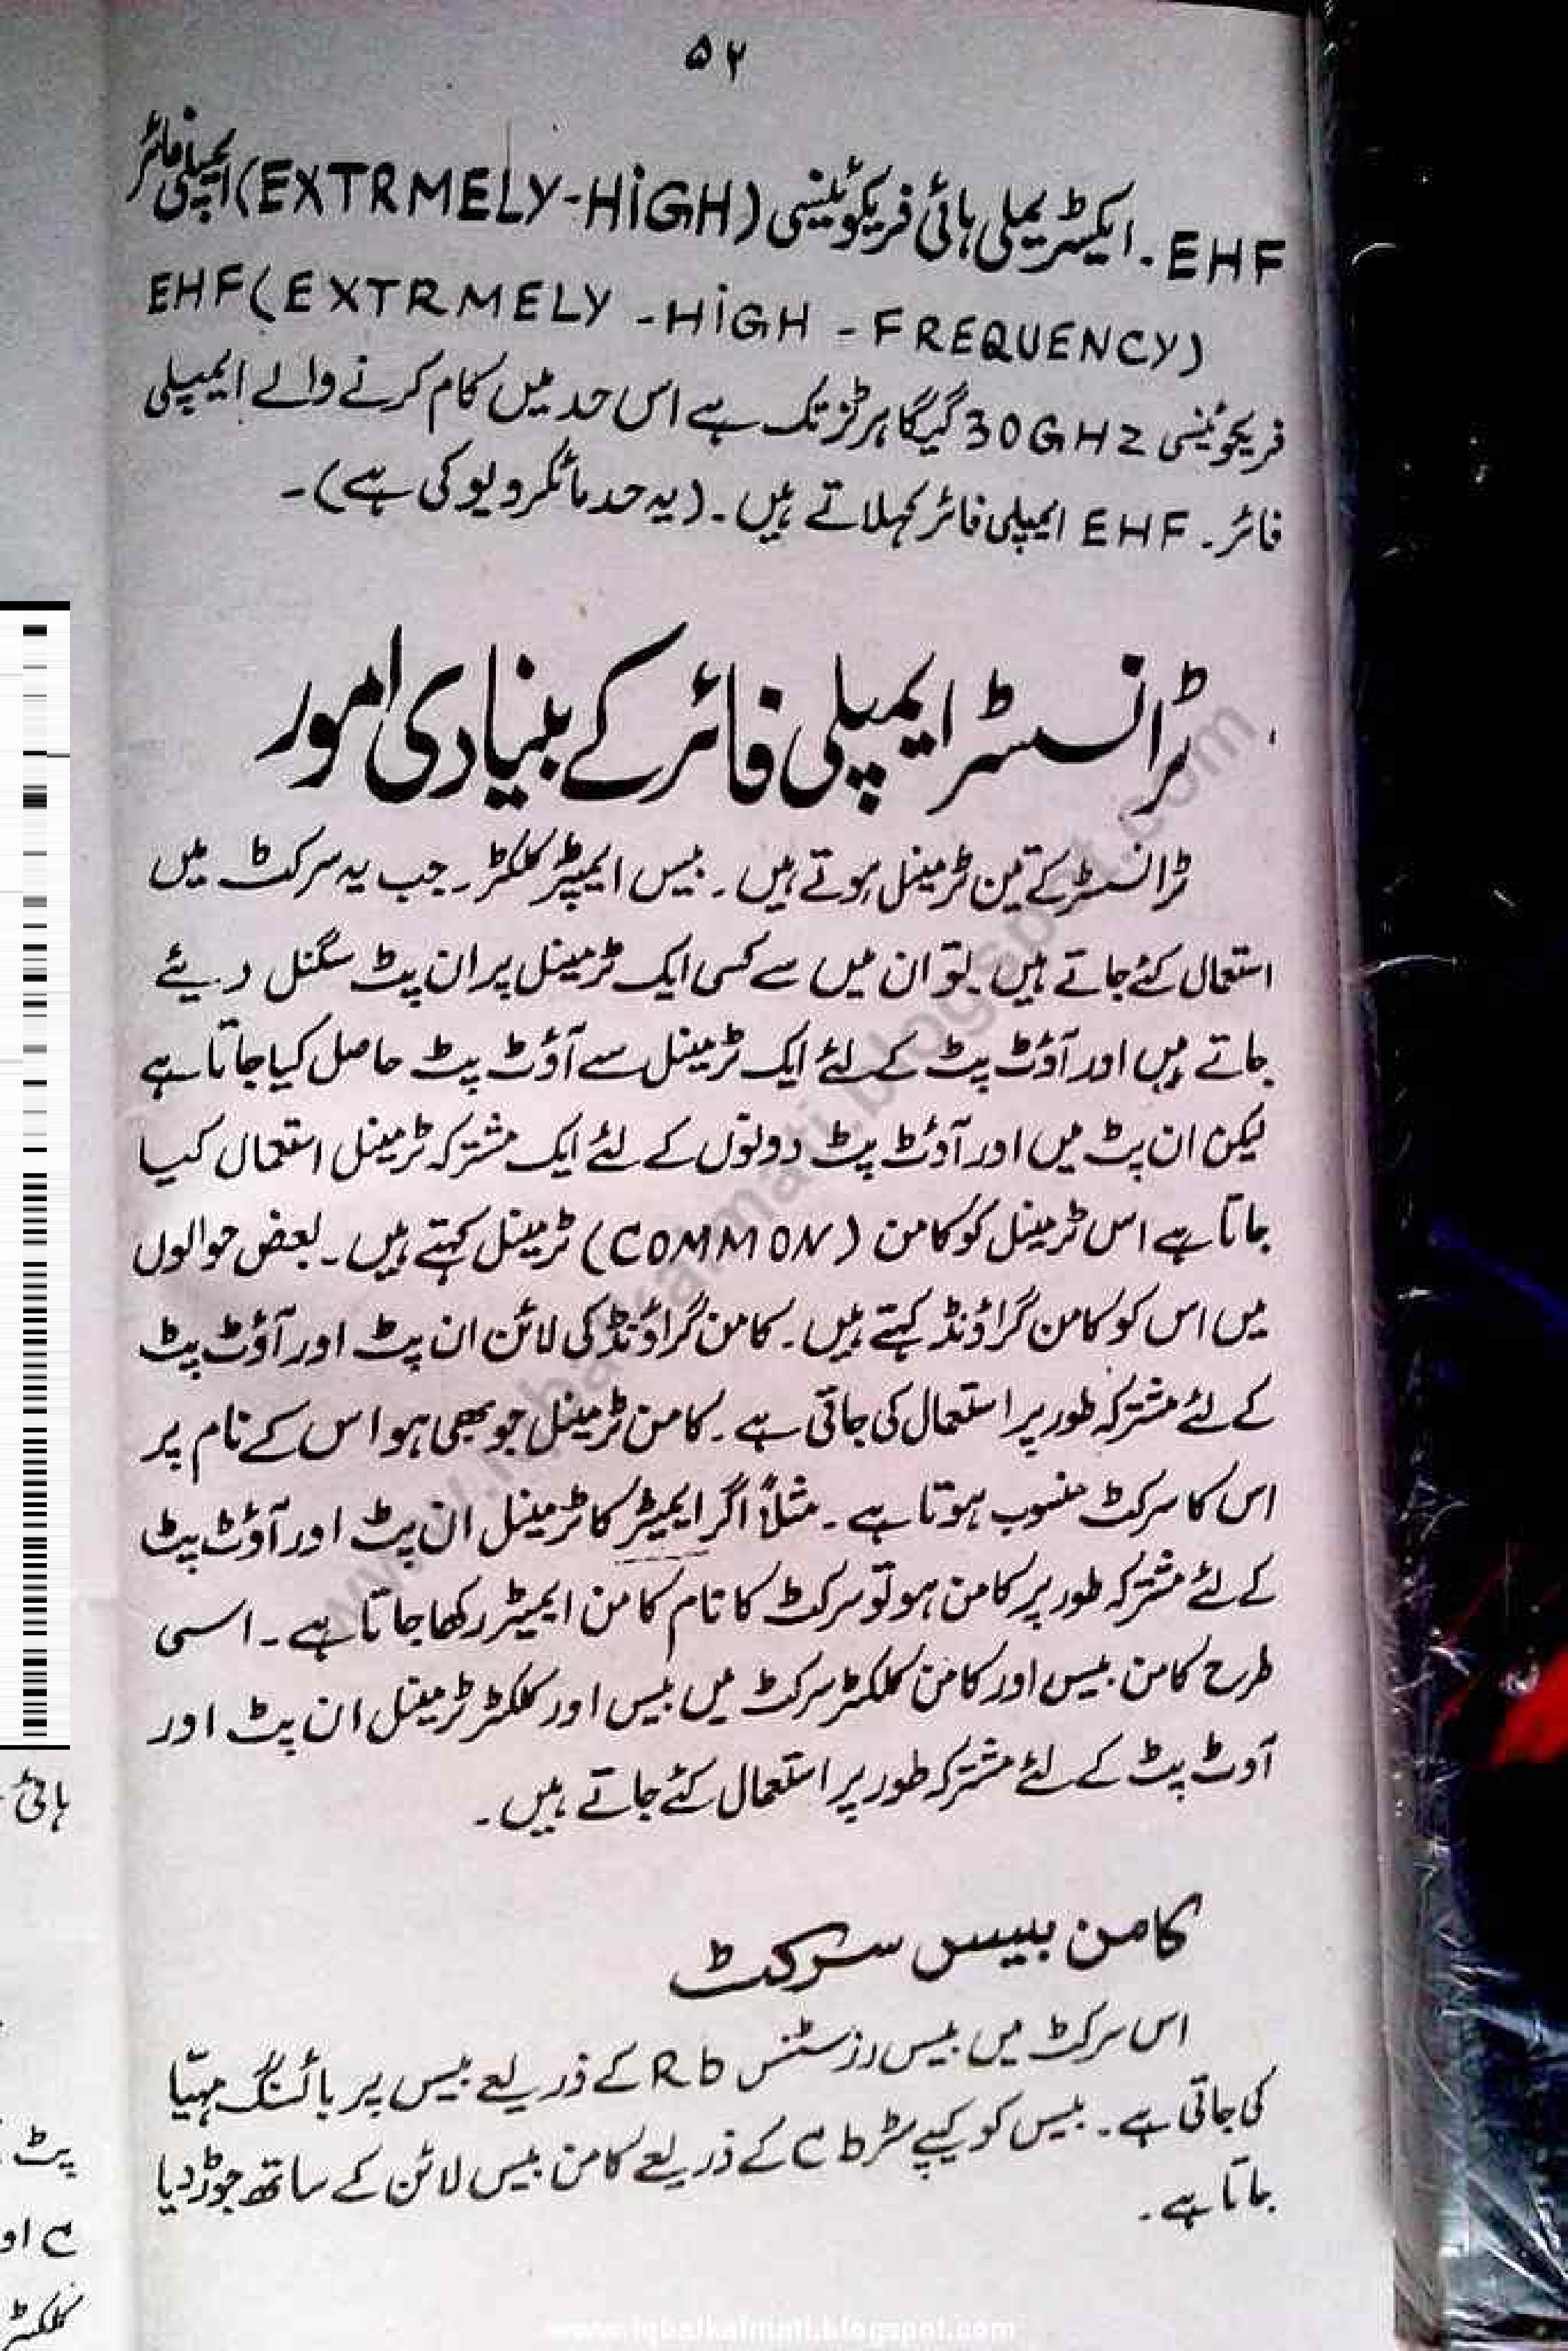 ۵۲
EHF۔ ایکسٹریملی ہائی فریکوئینسی (EXTRMELY-HiGH) ایمپلی فائر
EHF(EXTRMELY -HiGH -FREQUENCY)
فریکوئینسی 30GHZ گیگا ہرٹز تک ہے اس حد میں کام کرنے والے ایمپلی
فائر۔ EHF ایمپلی فائر کہلاتے ہیں۔ (یہ حد مائکروویو کی ہے)۔
ٹرانسسٹر ایمپلی فائر کے بنیادی امور
ٹرانسسٹر کے تین ٹرمینل ہوتے ہیں۔ بیس ایمیٹر کلکٹر۔ جب یہ سرکٹ میں
استعمال کئے جاتے ہیں۔ تو ان میں سے کسی ایک ٹرمینل پر ان پٹ سگنل دیئے
جاتے ہیں اور آؤٹ پٹ کے لئے ایک ٹرمینل سے آؤٹ پٹ حاصل کیا جاتا ہے
لیکن ان پٹ میں اور آؤٹ پٹ دونوں کے لئے ایک مشترکہ ٹرمینل استعمال کیا
جاتا ہے اس ٹرمینل کو کامن (COMMON) ٹرمینل کہتے ہیں۔ بعض حوالوں
میں اس کو کامن گراؤنڈ کہتے ہیں۔ کامن گراؤنڈ کی لائن ان پٹ اور آؤٹ پٹ
کے لئے مشترکہ طور پر استعمال کی جاتی ہے۔ کامن ٹرمینل جو بھی ہو اس کے نام پر
اس کا سرکٹ منسوب ہوتا ہے۔ مثلاً اگر ایمیٹر کا ٹرمینل ان پٹ اور آؤٹ پٹ
کے لئے مشترکہ طور پر کامن ہو تو سرکٹ کا نام کامن ایمیٹر رکھا جاتا ہے۔ اسی
طرح کامن بیس اور کامن کلکٹر سرکٹ میں بیس اور کلکٹر ٹرمینل ان پٹ اور
آوٹ پٹ کے لئے مشترکہ طور پر استعمال کئے جاتے ہیں۔
کامن بیس سرکٹ
اس سرکٹ میں بیس رزسٹنس Rb کے ذریعے بیس پر بائسنگ مہیّا
کی جاتی ہے۔ بیس کو کیپے سٹر Cb کے ذریعے کامن بیس لائن کے ساتھ جوڑ دیا
جاتا ہے۔
ہائی
پٹ
C او
کلکٹر
www.iqbalkalmati.blogspot.com
www.iqbalkalmati.blogspot.com